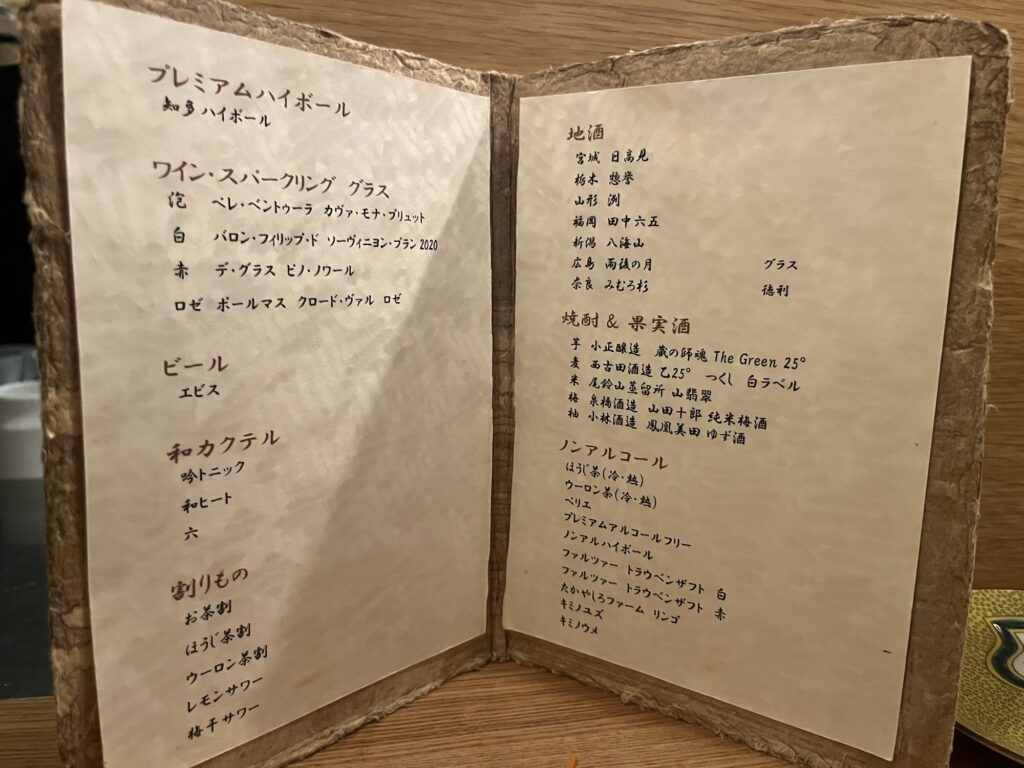 プレミアムハイボール
知多 ハイボール
ワイン・スパークリング グラス
泡 ベレ・ベントゥーラ カヴァ・モナ・ブリュット
白 バロン・フィリップ・ド ソーヴィニヨン・ブラン 2020
赤 デ・グラス ピノ・ノワール
ロゼ ポールマス クロード・ヴァル ロゼ
ビール
エビス
和カクテル
吟トニック
和ヒート
六
割りもの
お茶割
ほうじ茶割
ウーロン茶割
レモンサワー
梅干サワー
地酒
宮城 日高見
栃木 惣誉
山形 洌
福岡 田中六五
新潟 八海山
広島 雨後の月 グラス
奈良 みむろ杉 徳利
焼酎 & 果実酒
芋 小正醸造 蔵の師魂 The Green 25°
麦 西吉田酒造 乙25° つくし 白ラベル
米 尾鈴山蒸留所 山翡翠
梅 泉橋酒造 山田十郎 純米梅酒
柚 小林酒造 鳳凰美田 ゆず酒
ノンアルコール
ほうじ茶(冷・熱)
ウーロン茶(冷・熱)
ペリエ
プレミアムアルコールフリー
ノンアルハイボール
ファルツァー トラウベンザフト 白
ファルツァー トラウベンザフト 赤
たかやしろファーム リンゴ
キミノユズ
キミノウメ